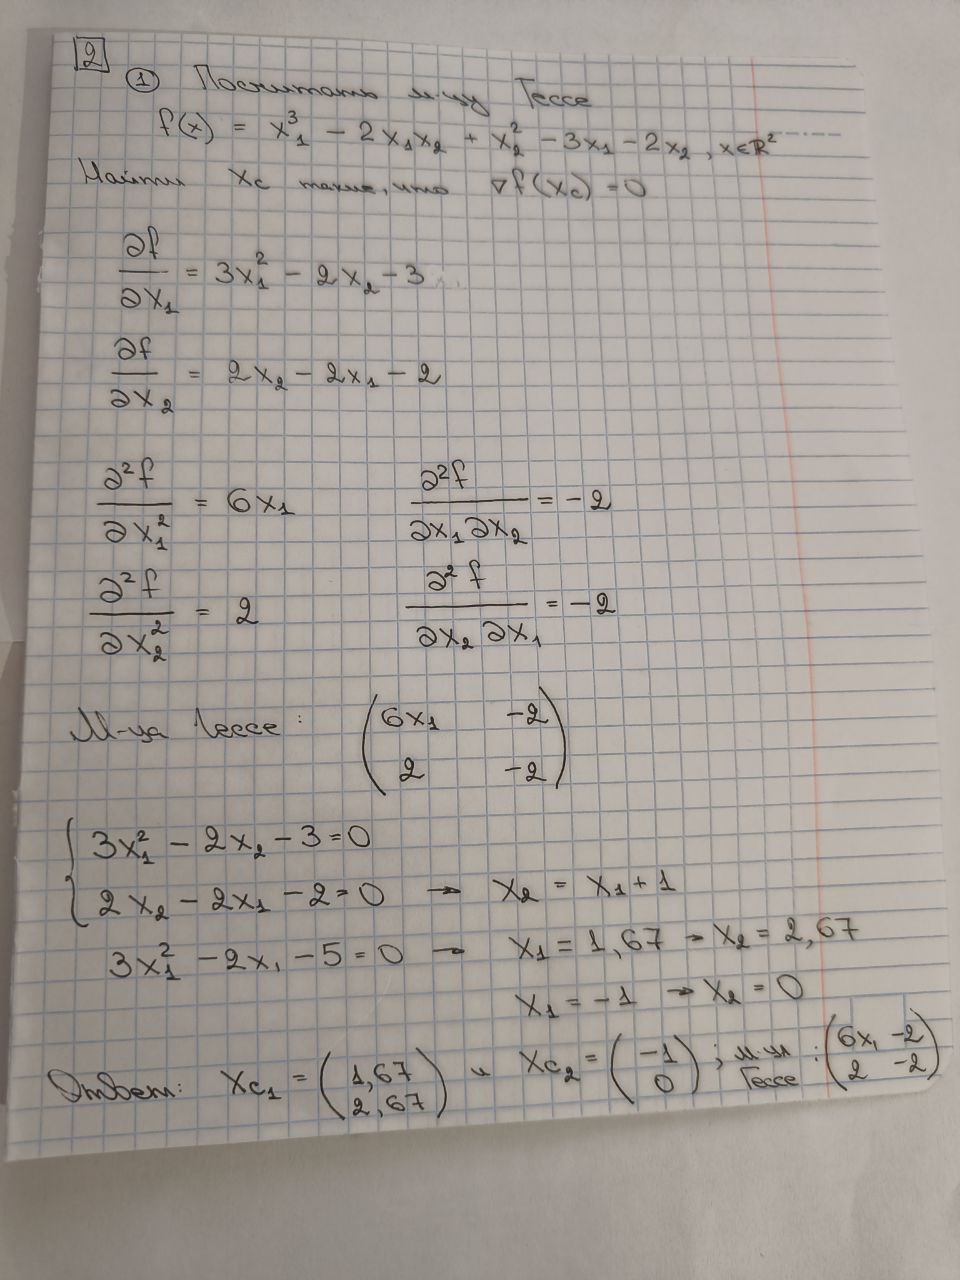 2
① Посчитать м-цу Гессе
f(x) = x₁³ - 2x₁x₂ + x₂² - 3x₁ - 2x₂, x∈ℝ²
Найти x_c такие, что ∇f(x_c) = 0
∂f/∂x₁ = 3x₁² - 2x₂ - 3
∂f/∂x₂ = 2x₂ - 2x₁ - 2
∂²f/∂x₁² = 6x₁ ∂²f/∂x₁∂x₂ = -2
∂²f/∂x₂² = 2 ∂²f/∂x₂∂x₁ = -2
М-ца Гессе: (6x₁ -2
2 -2)
{ 3x₁² - 2x₂ - 3 = 0
2x₂ - 2x₁ - 2 = 0 → x₂ = x₁ + 1
3x₁² - 2x₁ - 5 = 0 → x₁ = 1,67 → x₂ = 2,67
x₁ = -1 → x₂ = 0
Ответ: x_c₁ = (1,67 2,67) и x_c₂ = (-1 0); м-ца Гессе: (6x₁ -2 2 -2)